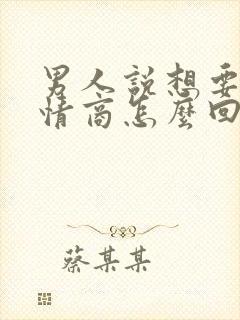 男人說想要
情商怎麼回
蔡某某